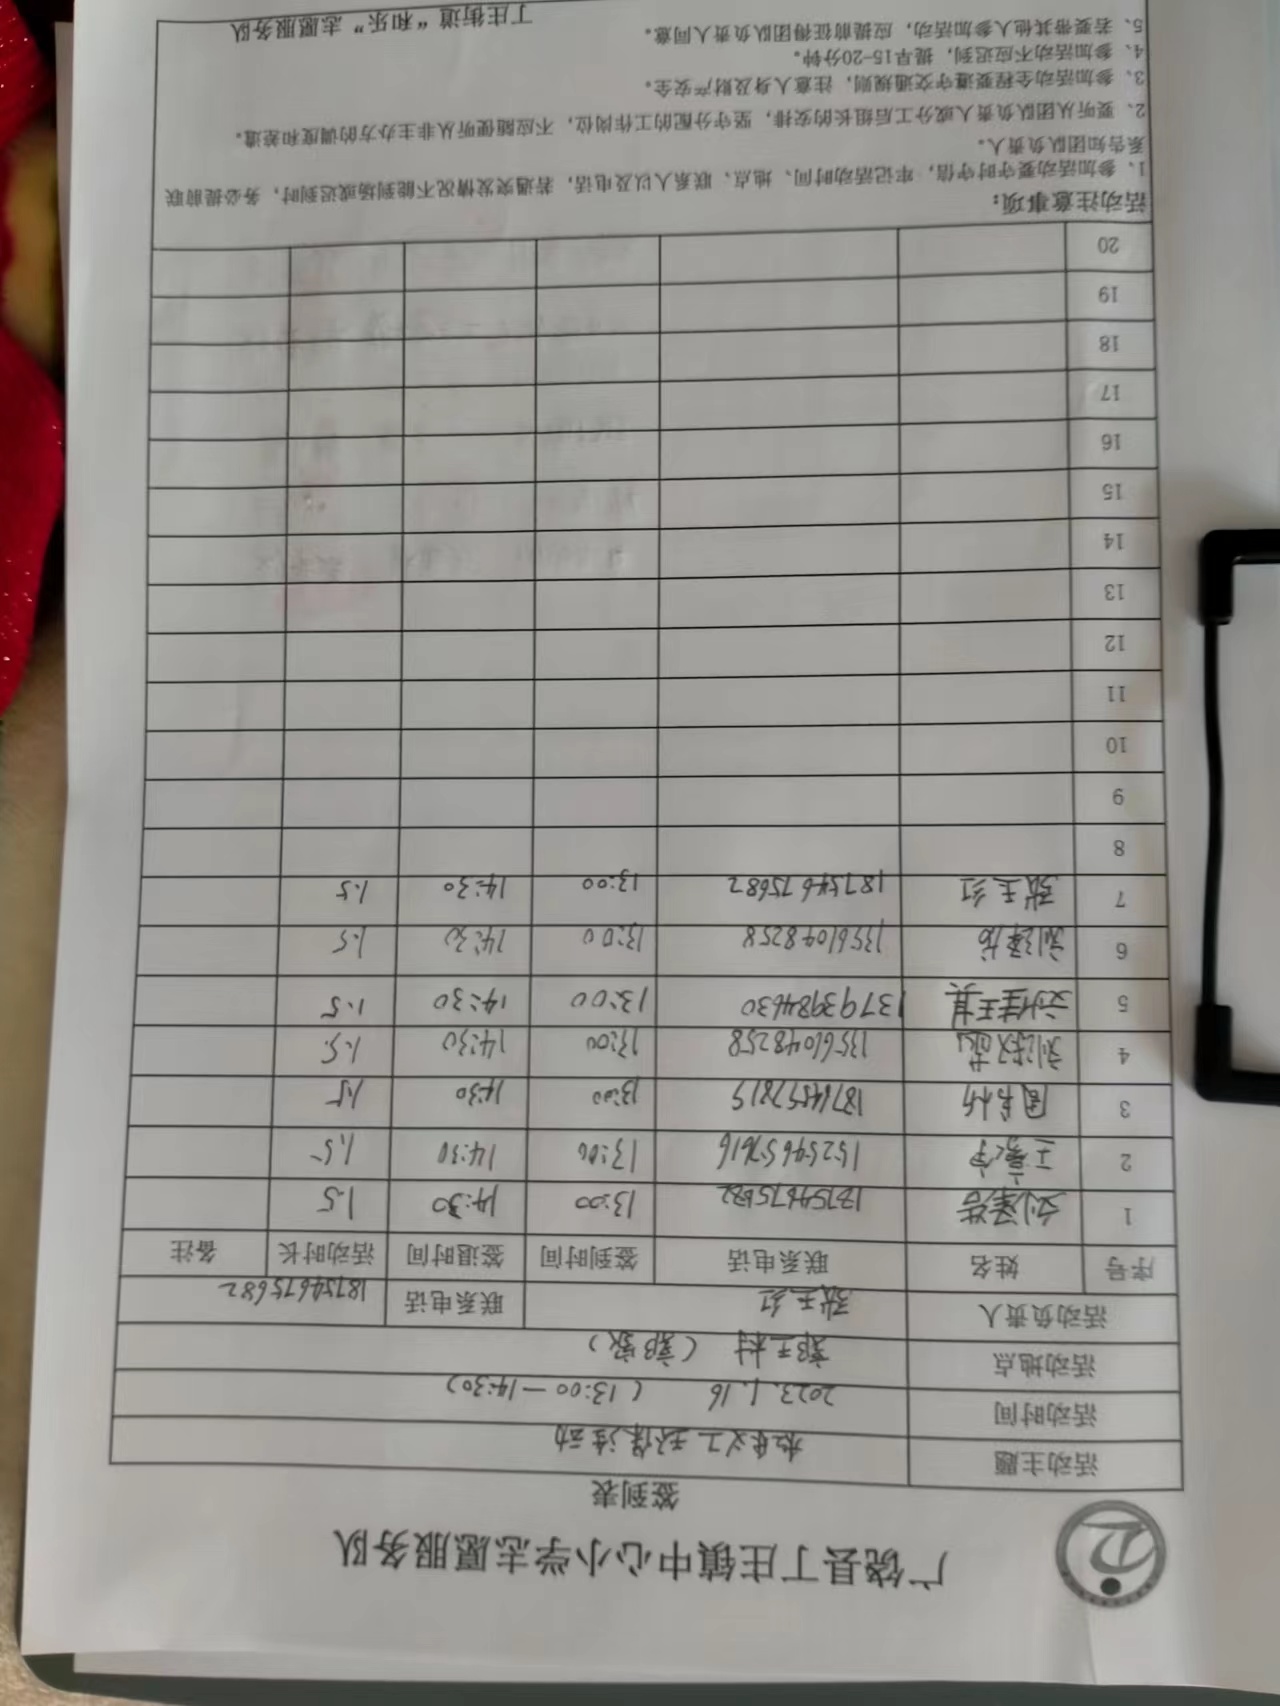 广饶县丁庄镇中心小学志愿服务队
签到表
活动主题
活动时间 2023.1.16 (13:00—14:30)
活动地点 郭王村 (郭家)
活动负责人 张玉红 联系电话 18754675682
序号 姓名 联系电话 签到时间 签退时间 活动时长 备注
1 18754675682 13:00 14:30 1.5
2 王豪宇 15254657616 13:00 14:30 1.5
3 18764557819 13:00 14:30 1.5
4 13561048258 13:00 14:30 1.5
5 刘佳琪 13793984630 13:00 14:30 1.5
6 13561048258 13:00 14:30 1.5
7 张玉红 18754675682 13:00 14:30 1.5
8
9
10
11
12
13
14
15
16
17
18
19
20
活动注意事项：
1、参加活动要守时守信，牢记活动时间、地点、联系人以及电话，若遇突发情况不能到场或迟到时，务必提前联
系告知团队负责人。
2、要听从团队负责人或分工后组长的安排，坚守分配的工作岗位，不应随便听从非主办方的调度和差遣。
3、参加活动全程要遵守交通规则，注意人身及财产安全。
4、参加活动不应迟到，提早15-20分钟。
5、若要带其他人参加活动，应提前征得团队负责人同意。
丁庄街道“和乐”志愿服务队